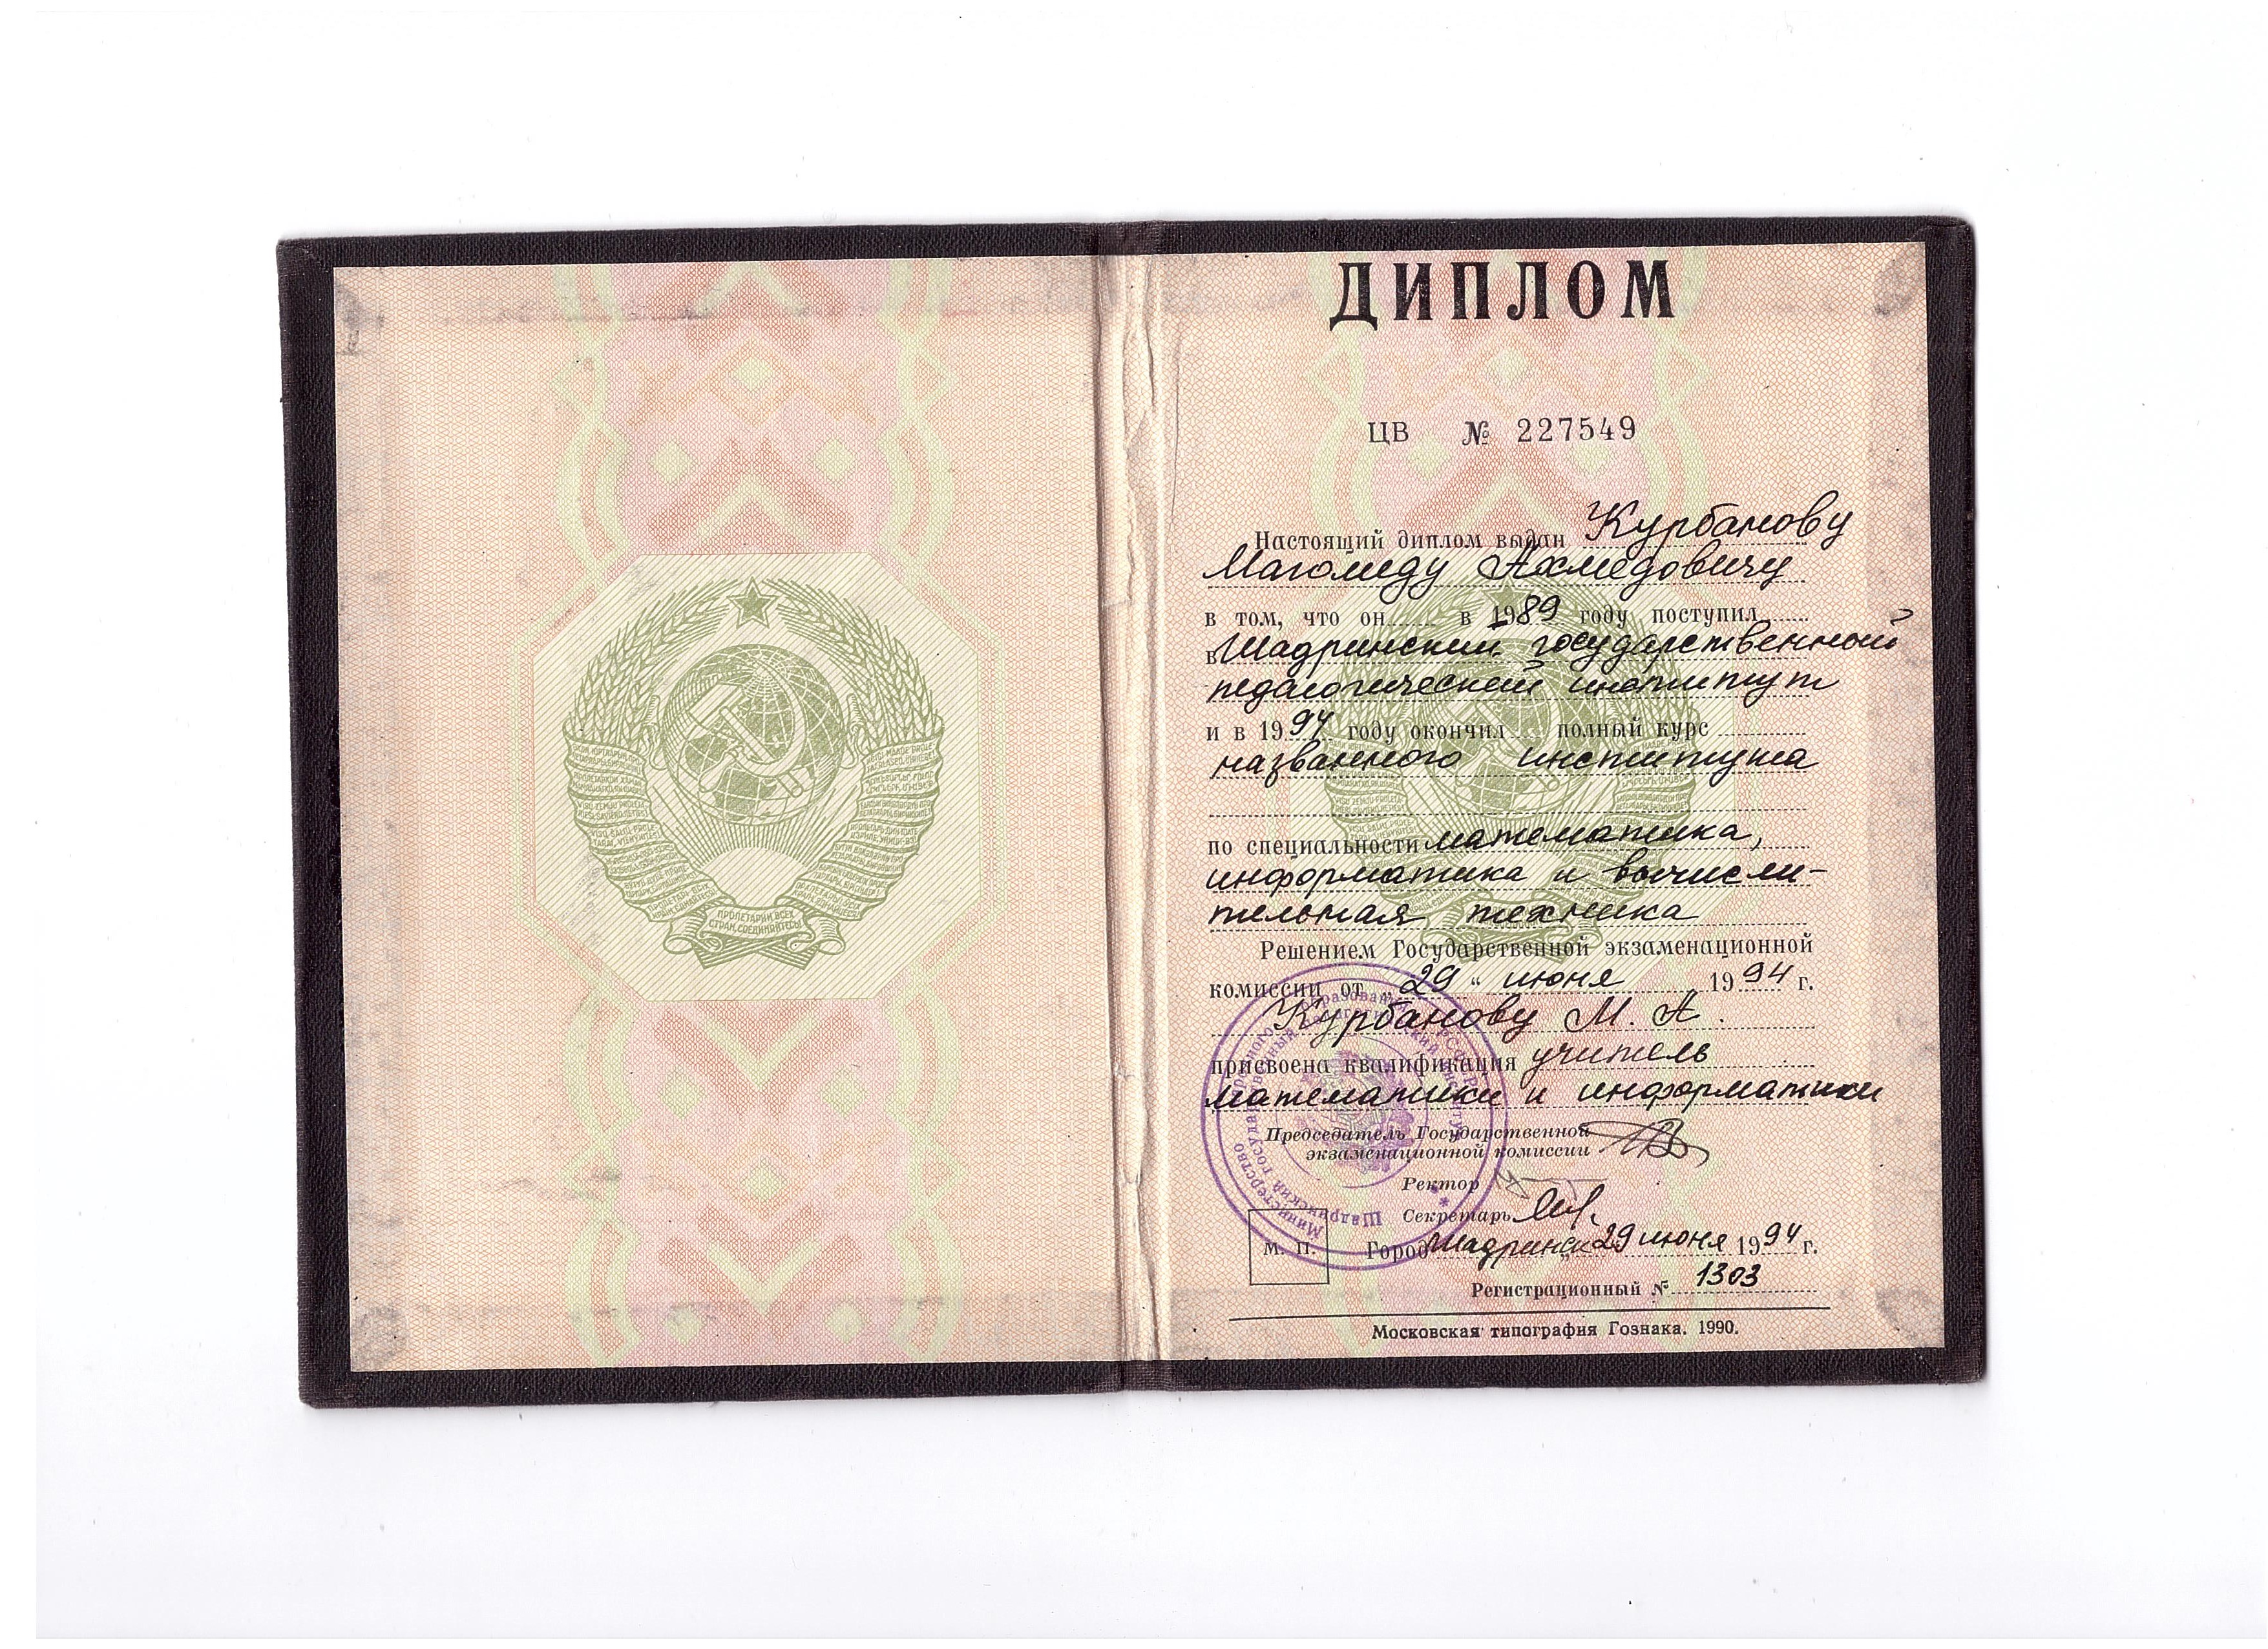 ДИПЛОМ
ЦВ № 227549
Настоящий диплом выдан Курбанову
Магомеду Ахмедовичу
в том, что он в 1989 году поступил
в Шадринский государственный
педагогический институт
и в 1994 году окончил полный курс
названного института
по специальности математика,
информатика и вычисли-
тельная техника
Решением Государственной экзаменационной
комиссии от „29“ июня 1994 г.
Курбанову М. А.
присвоена квалификация учитель
математики и информатики
Председатель Государственной
экзаменационной комиссии
Ректор
Секретарь
М. П.
Город Шадринск „29 июня 1994 г.
Регистрационный № 1303
Московская типография Гознака. 1990.
ПРОЛЕТАРИИ ВСЕХ
СТРАН, СОЕДИНЯЙТЕСЬ!